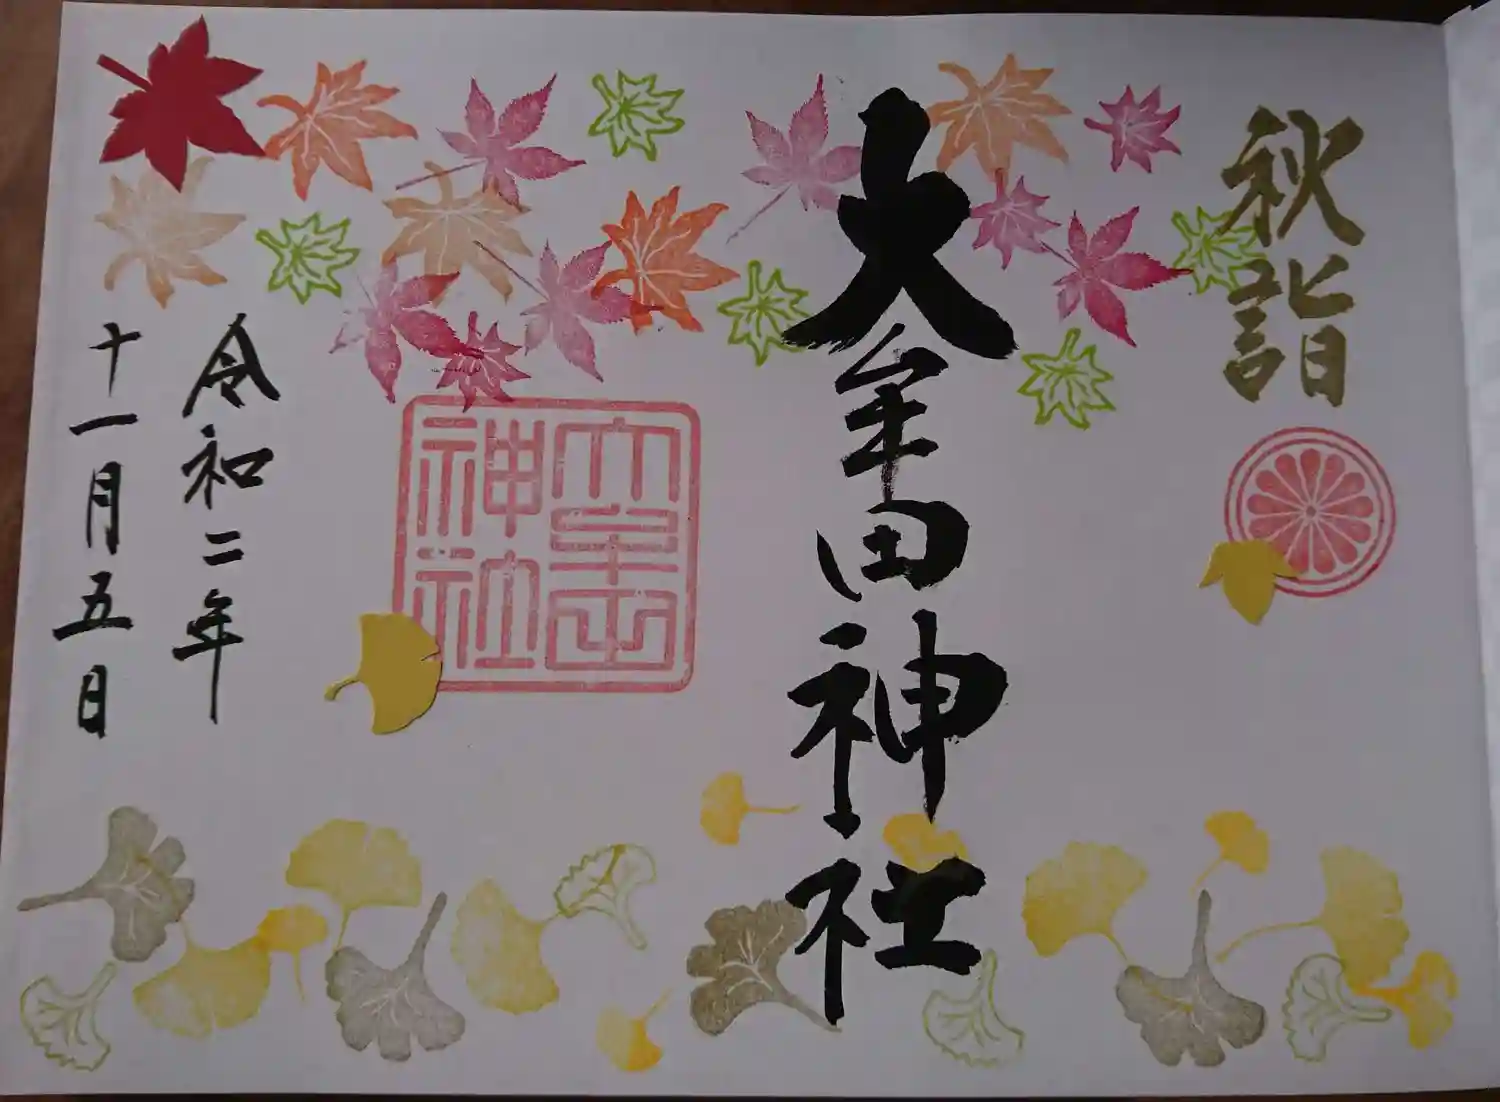 秋詣
大牟田神社
大牟田
神社
令和二年
十一月五日